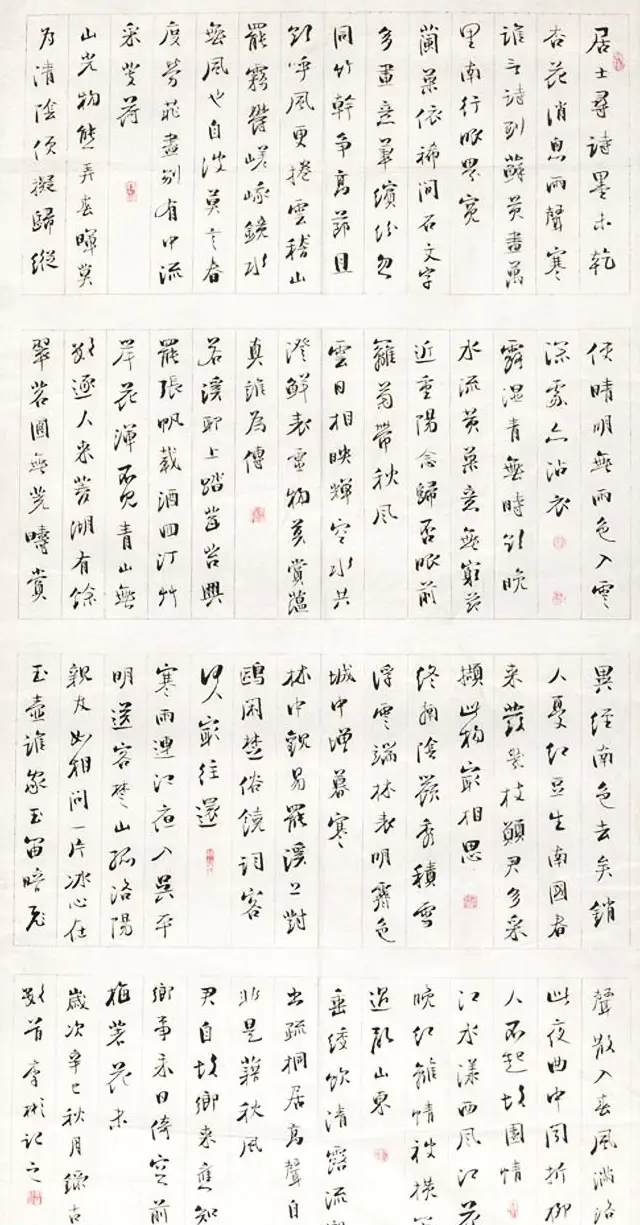 居士尋詩墨未乾
杏花消息雨聲寒
誰言詩到蘇黃盡萬
里南行眼界寬
蘭葉依稀間石文字
多畫意筆繽紛忽
同竹幹爭高節且
欲呼風更捲雲稽山
罷霧鬱嵯峨鏡水
無風也自波莫言春
度芳菲盡別有中流
采芰荷
山光物態弄春暉莫
為清陰便擬歸縱
使晴明無雨色入雲
深處亦沾衣
露湿青蕪時欲晚
水流黃葉意無窮節
近重陽念歸否眼前
籬菊帶秋風
雲日相映輝空水共
澄鮮表靈物莫賞蘊
真誰為傳
若溪耶上踏莓苔興
罷張帆載酒回汀艸
岸花渾不見青山無
數逐人來菱湖有餘
翠茗圃無荒疇賞
異經南邑去矣銷
人憂紅豆生南國春
來發幾枝願君多采
擷此物最相思
終南陰嶺秀積雪
浮雲端林表明霽色
城中增暮寒
林中觀易罷溪上對
鷗閑楚俗饒詞客
何人最往還
寒雨連江夜入吳平
明送客楚山孤洛陽
親友如相問一片冰心在
玉壺誰家玉笛暗飛
聲散入春風滿洛
此夜曲中聞折柳
人不起故園情
江水漾西風江花
晚紅離情被橫
過山東
垂緌飲清露流
出疏桐居高聲自
非是藉秋風
君自故鄉來應知
鄉事來日倚窗前
梅著花未
歲次辛巳秋月錄古
數首李彬記之